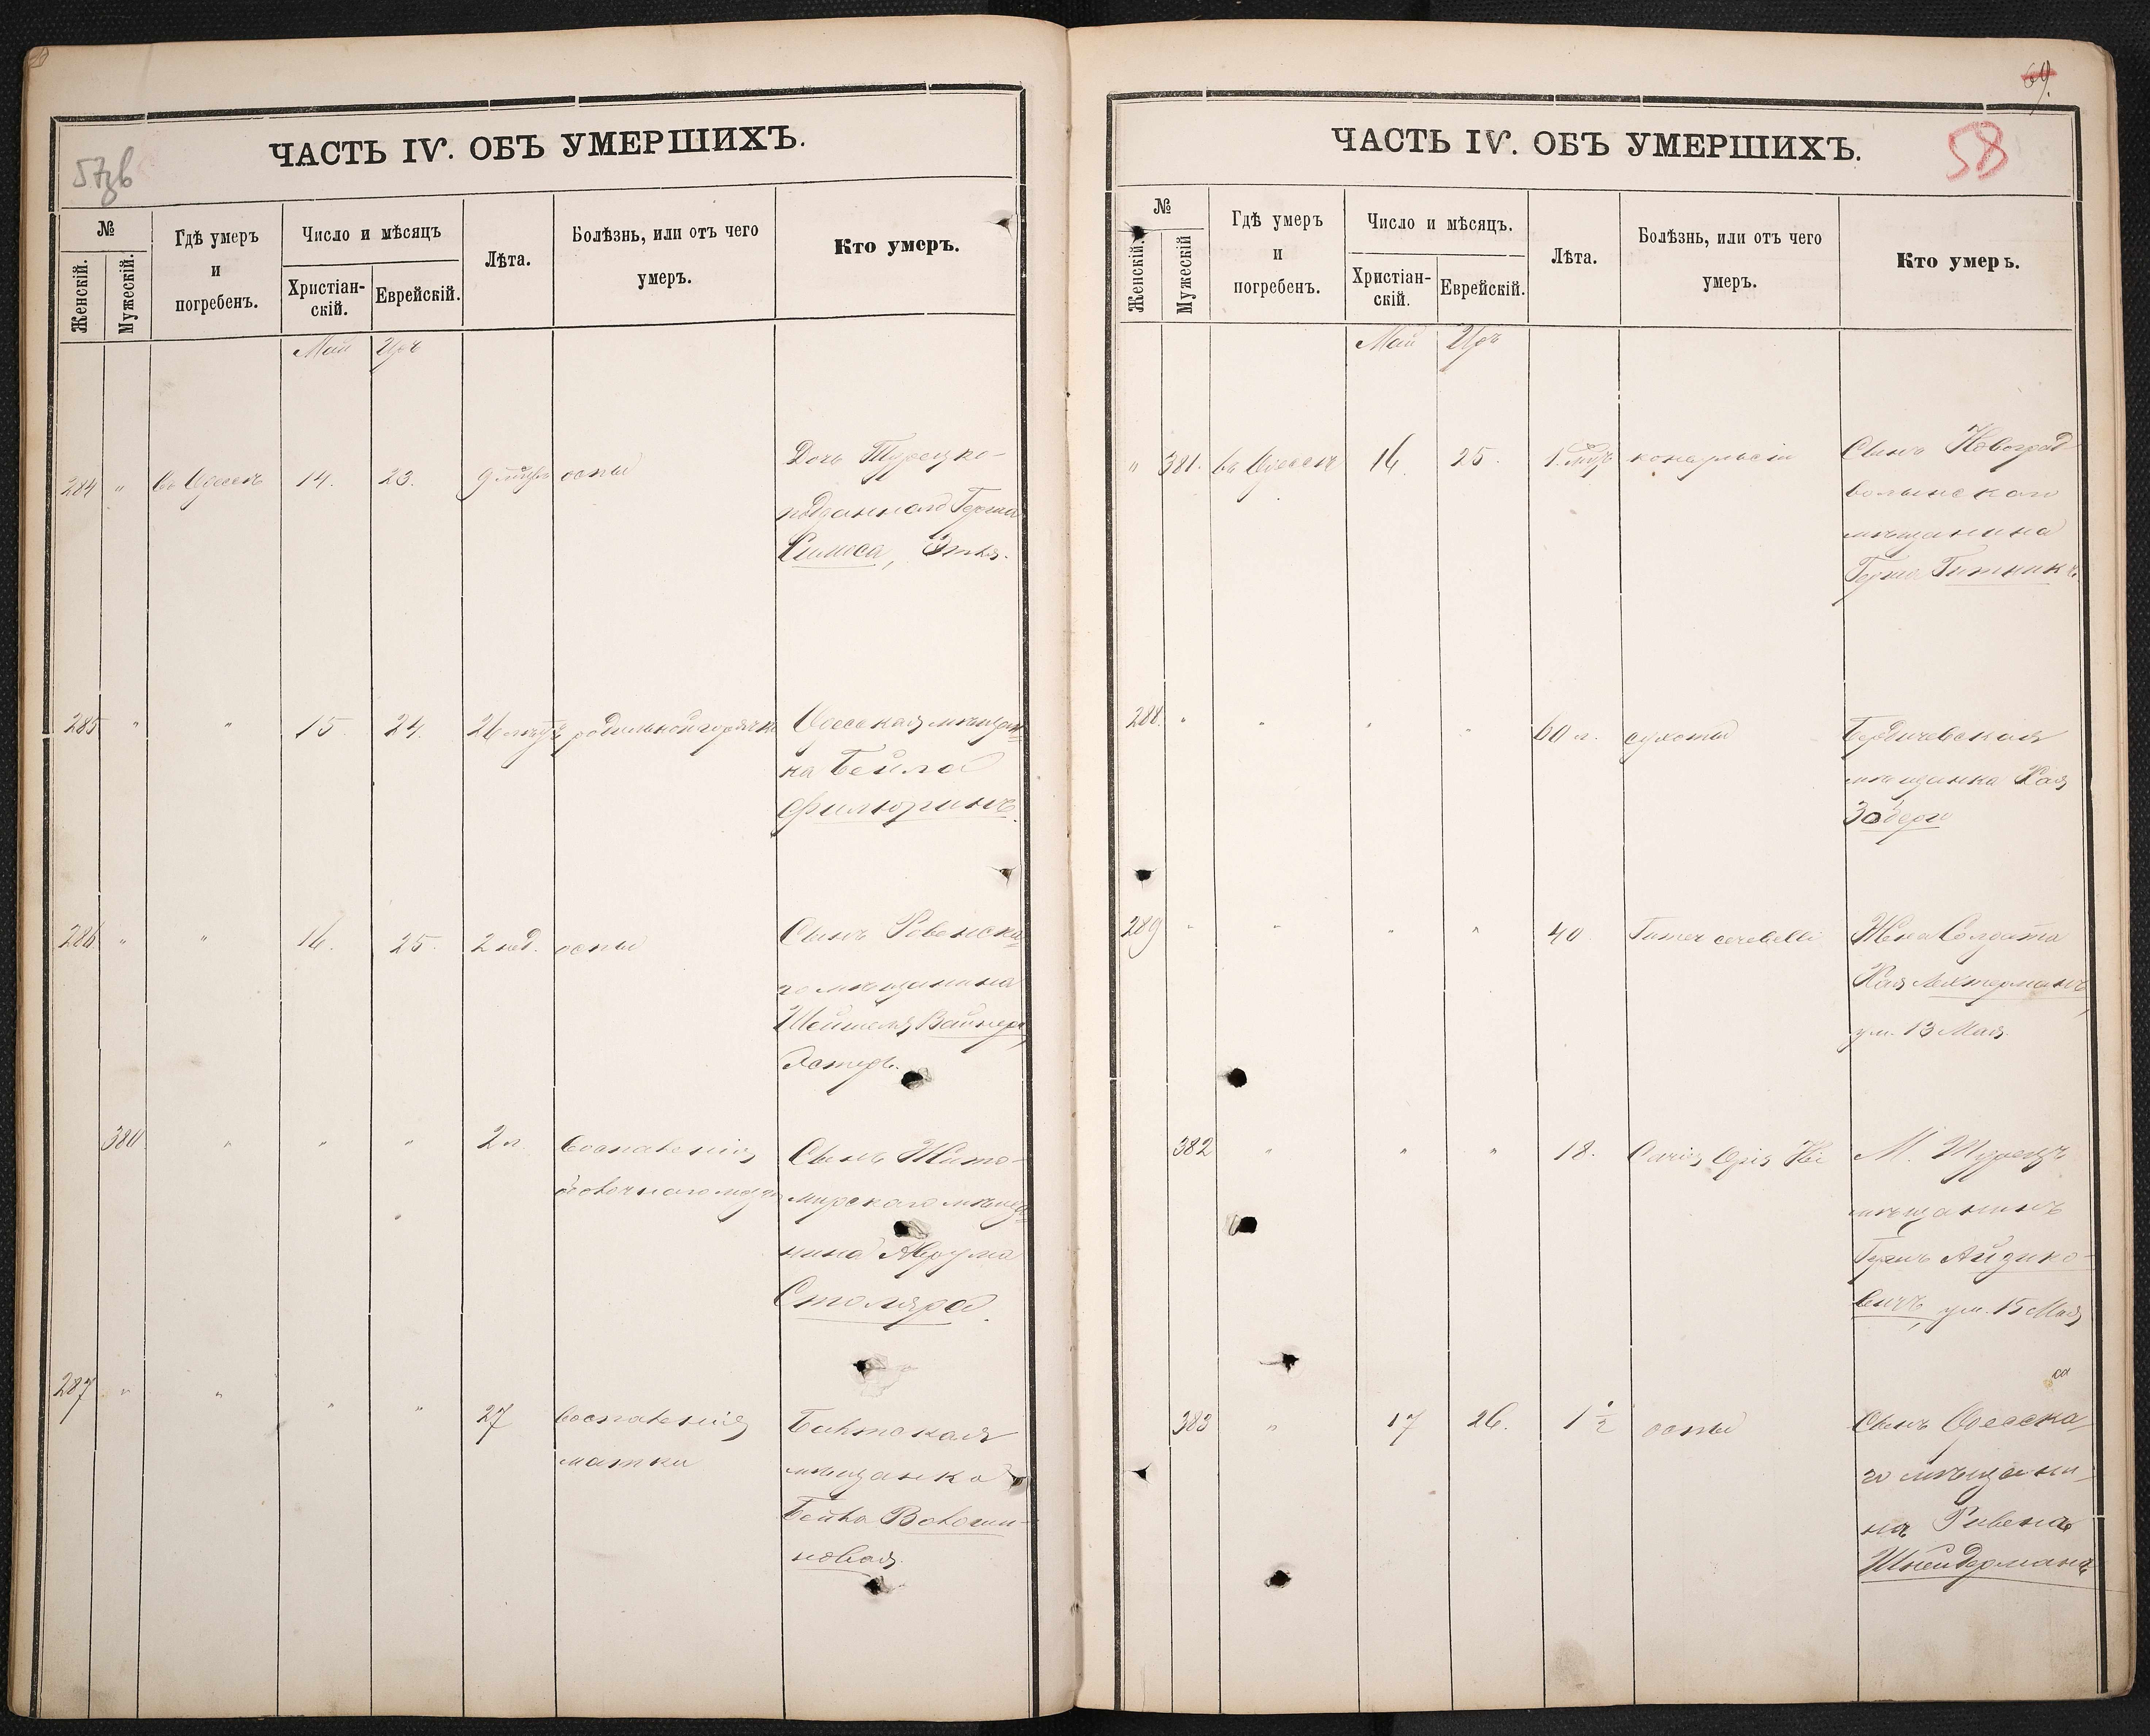 57зв
ЧАСТЬ IV. ОБЪ УМЕРШИХЪ.
№
Женскій.
Мужескій.
Гдѣ умеръ
и
погребенъ.
Число и мѣсяцъ
Христіан-
скій.
Еврейскій.
Лѣта.
Болѣзнь, или отъ чего
умеръ.
Кто умеръ.
Май Іяръ
284 " въ Одессѣ 14. 23. 9 оспы
Дочь Турецко-
подданнаго Герша
Симоса, Этля.
285 " " 15 24. 26 родильной горячки
Одесская мѣщан-
ка Бейла
Филюринъ.
286 " " 16. 25. 2 нед. оспы
Сынъ Ровенска-
го мѣщанина
Шейтеля Вайнера,
Эстеръ.
380 " " " 2 л. Воспаленія
Сынъ Жито-
мирскаго мѣща-
нина Аврума
Столяра.
287 " " " " 27 Воспаленія
матки
Балтская
мѣщанка
Бейла Волоши-
новая.
69.
58
ЧАСТЬ IV. ОБЪ УМЕРШИХЪ.
№
Женскій.
Мужескій
Гдѣ умеръ
и
погребенъ.
Число и мѣсяцъ.
Христіан-
скій.
Еврейскій.
Лѣта.
Болѣзнь, или отъ чего
умеръ.
Кто умеръ.
Май Іяръ
" 381. въ Одессѣ 16. 25. 1. конвульсіи
Сынъ Новоград-
волынскаго
мѣщанина
Герша Гитника.
288. " " " " 60 л. сухоты
Бердичевская
мѣщанка Хая
289 " " " " 40 Tumor cerebelli
Жена Солдата
Хая Лехтерманъ,
ум. 13 Мая.
382 " " " 18. Caries
М. Турецъ
мѣщанинъ
Гершъ Айзико-
вичъ, ум. 15 Мая
383 " 17 26. 1 1/2 оспы
Сынъ Одесска-
го мѣщани-
на Рувена
Шнейдермана